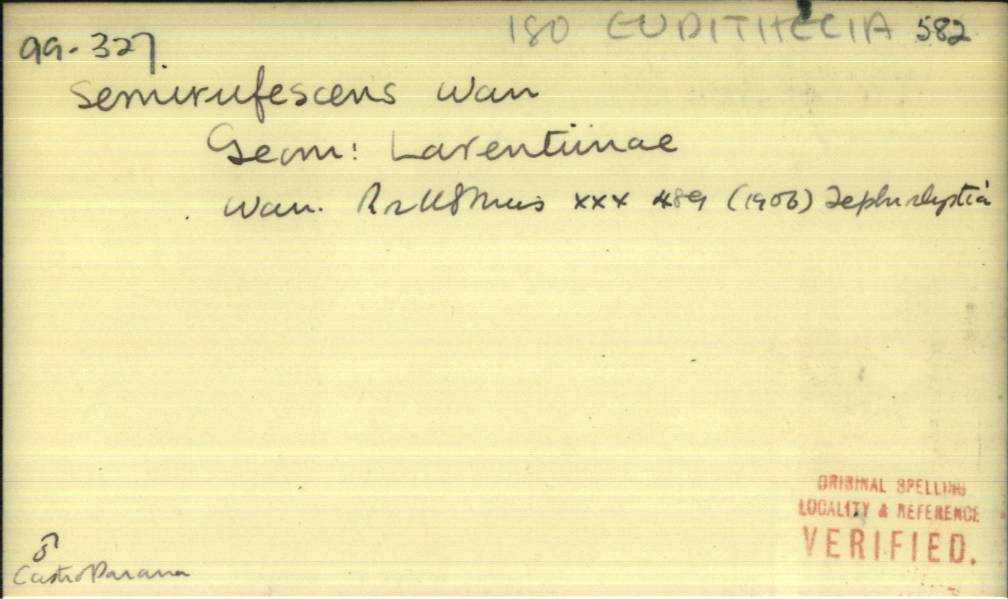 180 EUPITHECIA 582
99-327.
semirufescens Warr
Geom: Larentiinae
Warr. Pr US Mus xxx 489 (1906) Tephroclystia
ORIGINAL SPELLING
LOCALITY & REFERENCE
VERIFIED.
♂
Castro Parana